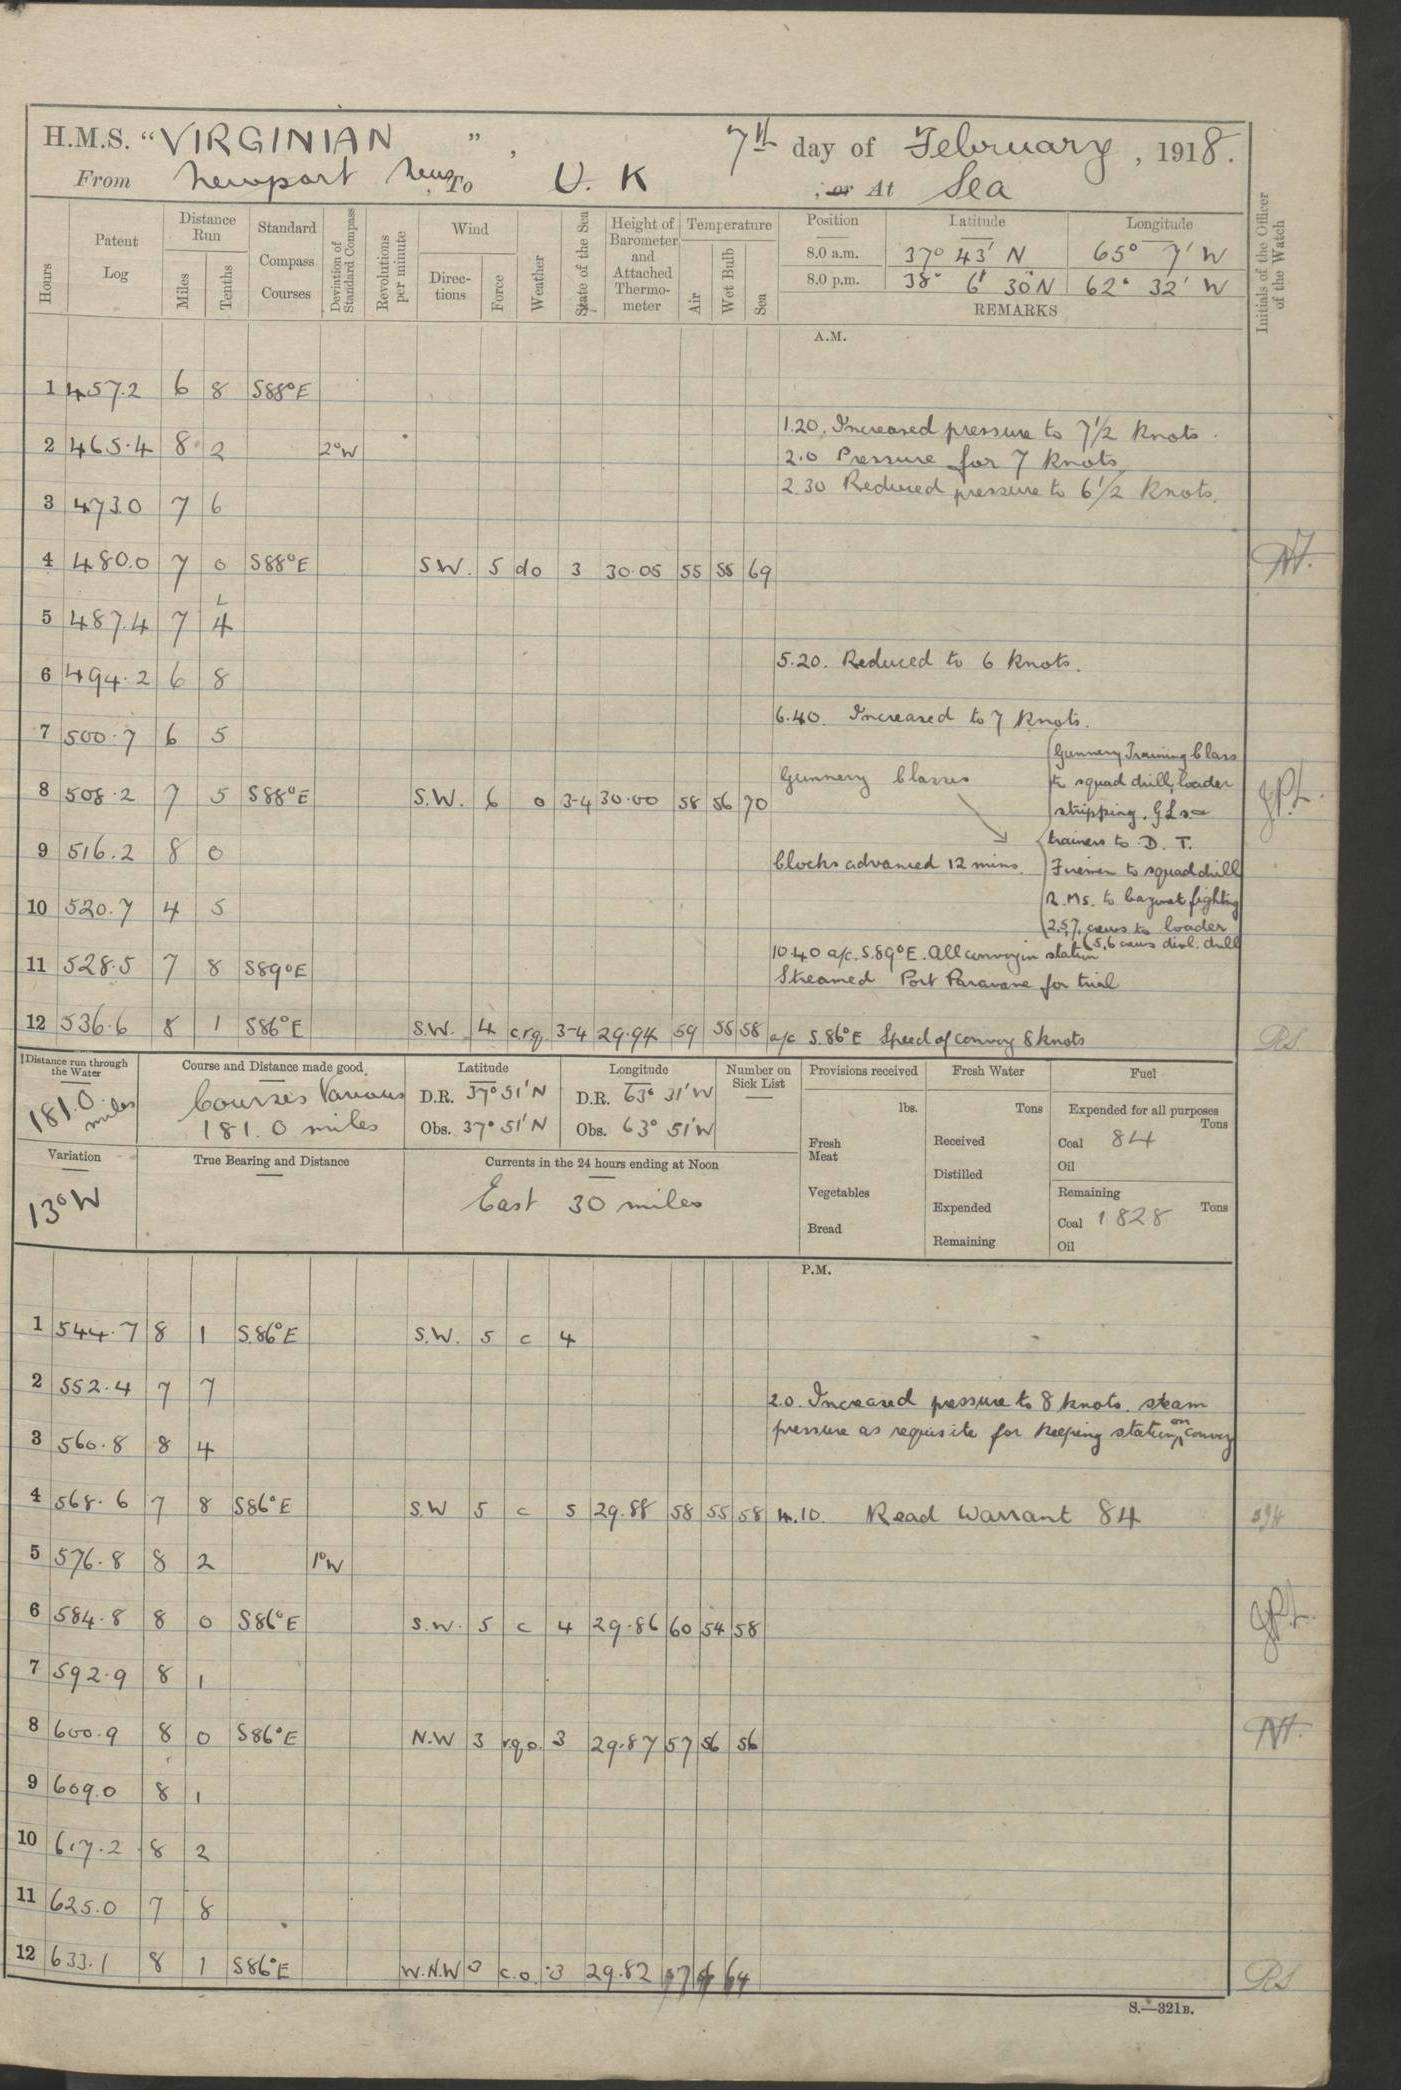 H.M.S. "VIRGINIAN", 7th day of February, 1918.
From Newport News To U. K , or At Sea
Hours
Patent Log
Distance Run
Miles
Tenths
Standard Compass Courses
Deviation of Standard Compass
Revolutions per minute
Wind
Directions
Force
Weather
State of the Sea
Height of Barometer and Attached Thermometer
Temperature
Air
Wet Bulb
Sea
Position Latitude Longitude
8.0 a.m. 37° 43' N 65° 7' W
8.0 p.m. 38° 6' 30" N 62° 32' W
REMARKS
Initials of the Officer of the Watch
A.M.
1 457.2 6 8 S88°E
1.20. Increased pressure to 7 1/2 knots.
2 465.4 8 2 2°W
2.0 Pressure for 7 knots
2.30 Reduced pressure to 6 1/2 knots.
3 473.0 7 6
4 480.0 7 0 S88°E S.W. 5 do 3 30.05 55 55 69
5 487.4 7 4
5.20. Reduced to 6 knots.
6 494.2 6 8
6.40. Increased to 7 knots.
7 500.7 6 5
Gunnery Classes
Gunnery Training Class
to squad drill, loader
stripping. GLs
trainers to D. T.
Firemen to squad drill
R.Ms. to bayonet fighting
2,5,7, crews to loader
5,6 crews divl. drill
8 508.2 7 5 S88°E S.W. 6 o 3-4 30.00 58 56 70 J.P.L.
9 516.2 8 0
Clocks advanced 12 mins.
10 520.7 4 5
10.40 a/c. S.89°E. All convoy in station
11 528.5 7 8 S89°E
Streamed Port Paravane for trial
12 536.6 8 1 S86°E S.W. 4 c.r.q. 3-4 29.94 59 55 58 a/c S.86°E Speed of convoy 8 knots RS
Distance run through the Water
181.0 miles
Course and Distance made good
Courses Various
181.0 miles
Latitude
D.R. 37° 51' N
Obs. 37° 51' N
Longitude
D.R. 63° 31' W
Obs. 63° 51' W
Number on Sick List
Provisions received
lbs.
Fresh Meat
Vegetables
Bread
Fresh Water
Tons
Received
Distilled
Expended
Remaining
Fuel
Expended for all purposes
Tons
Coal 84
Oil
Remaining
Tons
Coal 1828
Oil
Variation
13°W
True Bearing and Distance
Currents in the 24 hours ending at Noon
East 30 miles
P.M.
1 544.7 8 1 S.86°E S.W. 5 c 4
2 552.4 7 7
2.0. Increased pressure to 8 knots. steam
pressure as requisite for keeping station on convoy
3 560.8 8 4
4 568.6 7 8 S86°E S.W 5 c 5 29.88 58 55 58 4.10. Read Warrant 84
5 576.8 8 2 1°W
6 584.8 8 0 S86°E S.W. 5 c 4 29.86 60 54 58 J.P.L.
7 592.9 8 1
8 600.9 8 0 S86°E N.W 3 r.q.o. 3 29.87 57 56 56
9 609.0 8 1
10 617.2 8 2
11 625.0 7 8
12 633.1 8 1 S86°E W.N.W 3 c.o. 3 29.82 57 56 64 RS
S.—321B.